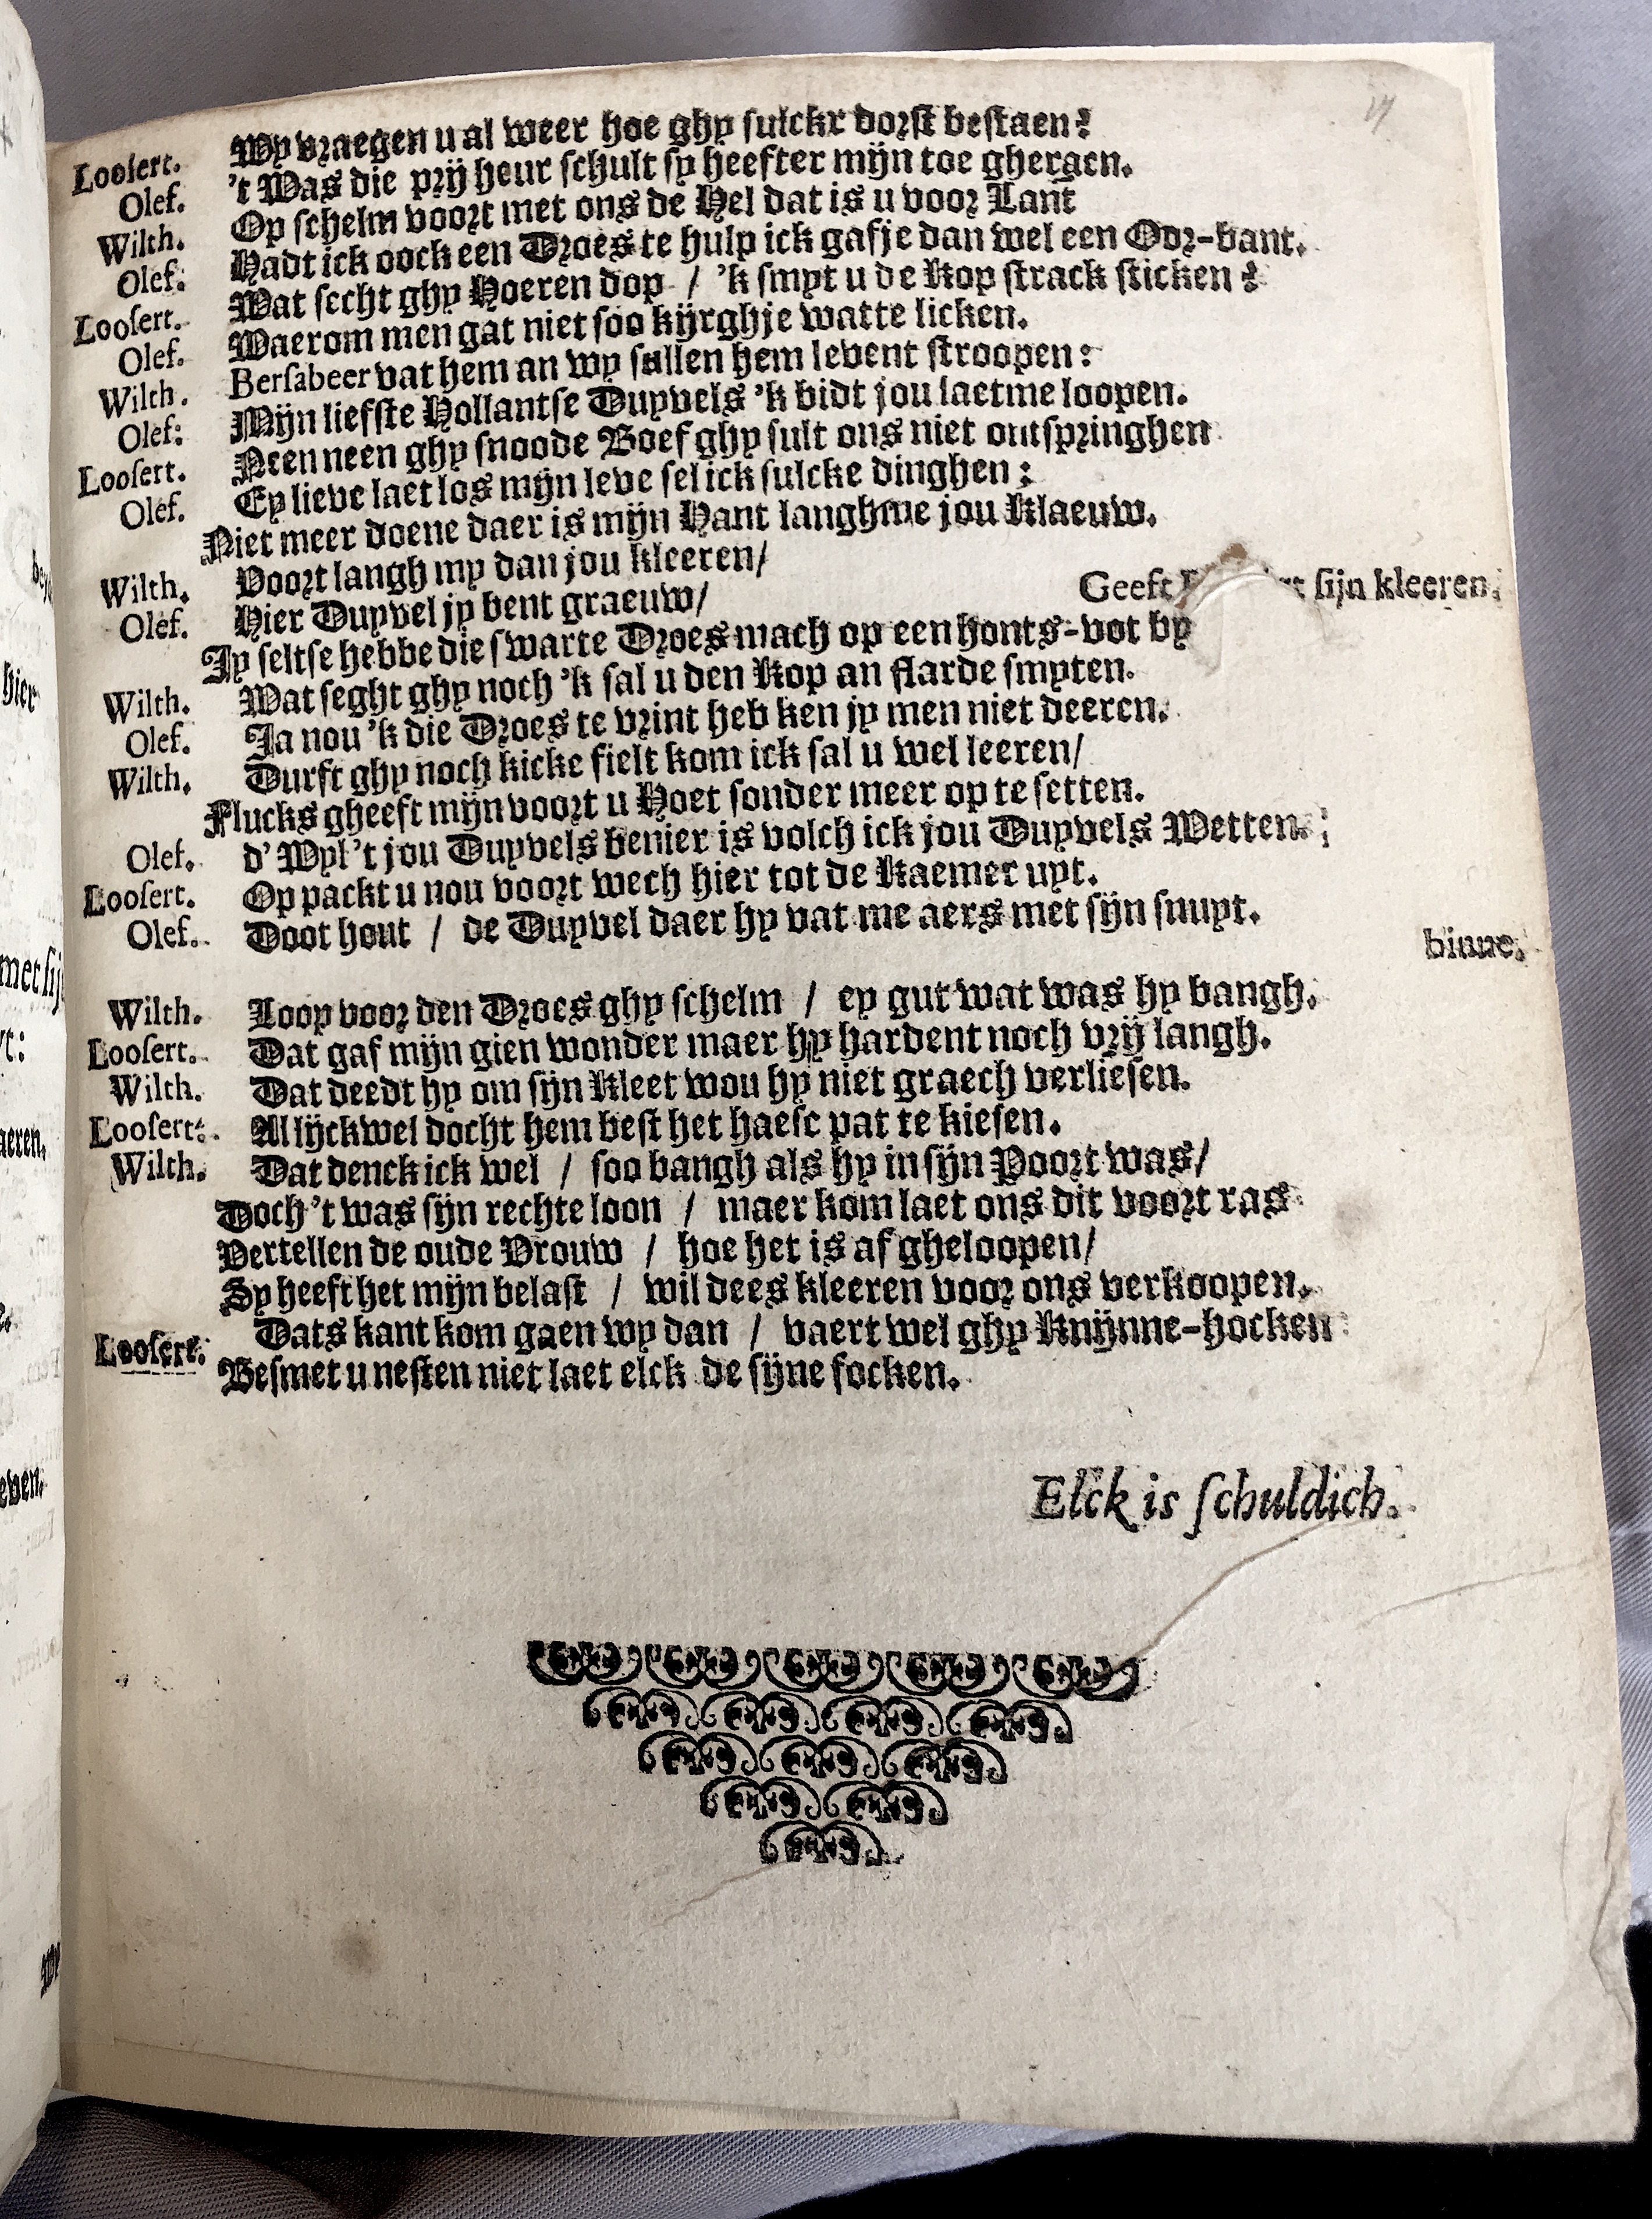 Wy vraegen u al weer hoe ghy sulckx dorst bestaen?
Loosert. 't Was die prij heur schult sy heefter mijn toe gheraen.
Olef. Op schelm voort met ons de Hel dat is u voor Lant
Wilth. Hadt ick oock een Droes te hulp ick gafje dan wel een Oor-bant.
Olef: Wat secht ghy Hoeren dop / 'k smyt u de Kop strack sticken?
Loosert. Waerom men gat niet soo kijrghje watte licken.
Olef. Bersabeer vat hem an wy sullen hem levent stroopen:
Wilth. Mijn liefste Hollantse Duyvels 'k bidt jou laetme loopen.
Olef: Neen neen ghy snoode Boef ghy sult ons niet ontspringhen
Loosert. Ey lieve laet los mijn leve sel ick sulcke dinghen:
Olef. Niet meer doene daer is mijn Hant langhme jou Klaeuw.
Wilth. Voort langh my dan jou kleeren/
Geeft sijn kleeren.
Olef. Hier Duyvel jy bent graeuw/
Jy seltse hebbe die swarte Droes mach op een honts-vot by
Wilth. Wat seght ghy noch 'k sal u den Kop an flarde smyten.
Olef. Ja nou 'k die Droes te vrint heb ken jy men niet deeren.
Wilth. Durft ghy noch kicke fielt kom ick sal u wel leeren/
Flucks gheeft mijn voort u Hoet sonder meer op te setten.
Olef. d'Wyl 't jou Duyvels benier is volch ick jou Duyvels Wetten.
Loosert. Op packt u nou voort wech hier tot de Kaemer uyt.
Olef. Doot hout / de Duyvel daer hy vat me aers met sijn snuyt.
binne.
Wilth. Loop voor den Droes ghy schelm / ey gut wat was hy bangh.
Loosert. Dat gaf mijn gien wonder maer hy hardent noch vrij langh.
Wilth. Dat deedt hy om sijn Kleet wou hy niet graech verliesen.
Loosert. Al lijckwel docht hem best het haesc pat te kiesen.
Wilth. Dat denck ick wel / soo bangh als hy in sijn Poort was/
Doch 't was sijn rechte loon / maer kom laet ons dit voort ras
Vertellen de oude Vrouw / hoe het is af gheloopen/
Sy heeft het mijn belast / wil dees kleeren voor ons verkoopen.
Loosert. Dats kant kom gaen wy dan / vaert wel ghy Knijnne-hocken
Besmet u nesten niet laet elck de sijne focken.
Elck is schuldich.